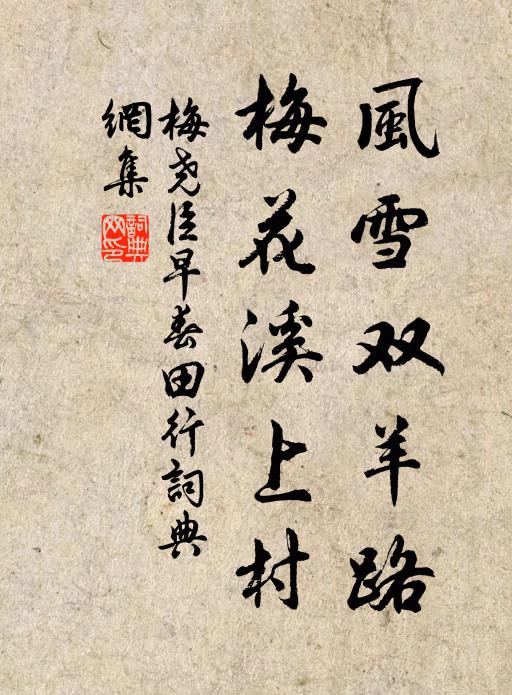 風雪双羊路
梅花溪上村
梅尧臣早春田行詞典
網集
詞典
网印